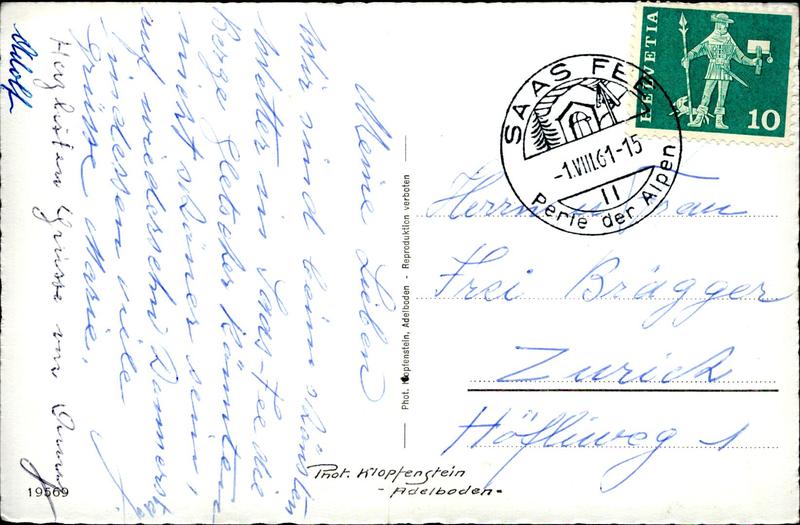 Meine Lieben
Wir sind beim schönsten
Wetter in Saas-Fee die
Berge Gletscher könnten
nicht schöner sein,
auf wiedersehn Donnerstg
indessen viele
grüsse Marie.
Herzlichen Grüsse von
Adolf
19569
Phot. Klopfenstein, Adelboden - Reproduktion verboten
Phot. Klopfenstein
- Adelboden -
SAAS FEE
-1.VIII.61-15
11
Perle der Alpen
HELVETIA
10
Herrn u. Frau
Frei Brägger
Zürich
Höfliweg 1